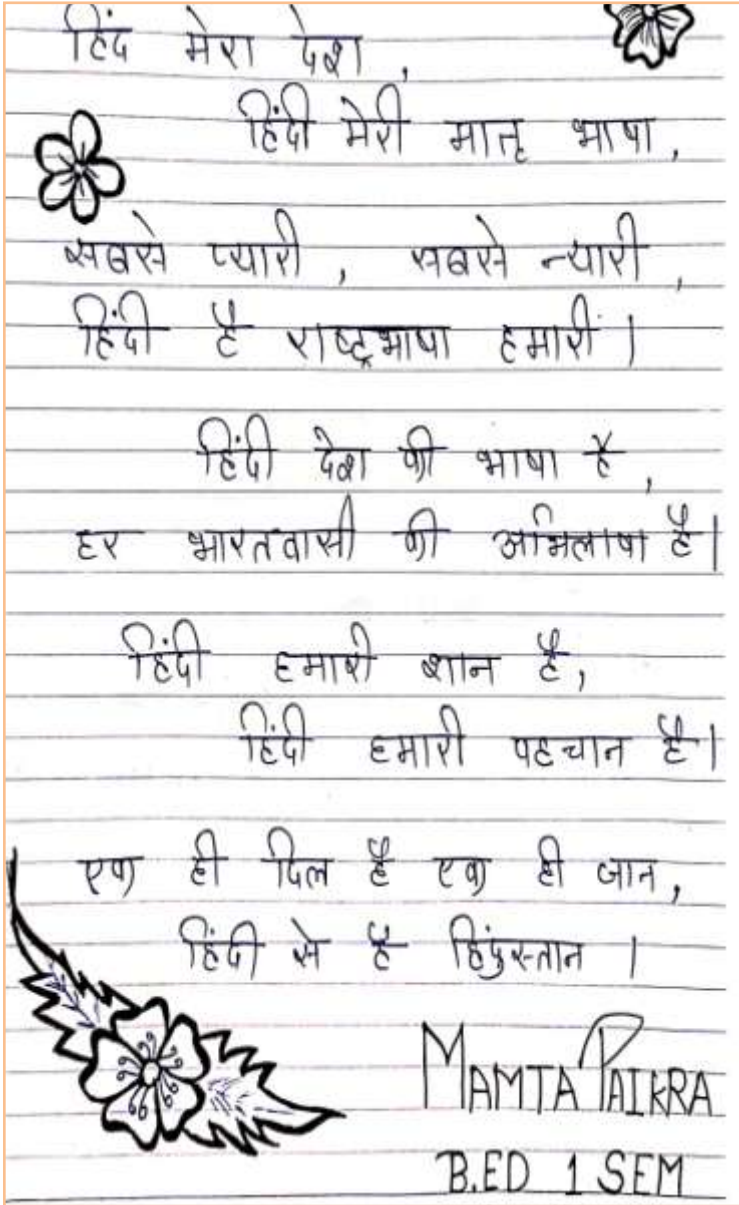 हिंद मेरा देश,
हिंदी मेरी मातृ भाषा,
सबसे प्यारी, सबसे न्यारी,
हिंदी है राष्ट्रभाषा हमारी।
हिंदी देश की भाषा है,
हर भारतवासी की अभिलाषा है।
हिंदी हमारी शान है,
हिंदी हमारी पहचान है।
एक ही दिल है एक ही जान,
हिंदी से है हिंदुस्तान।
MAMTA PAIKRA
B.ED 1 SEM